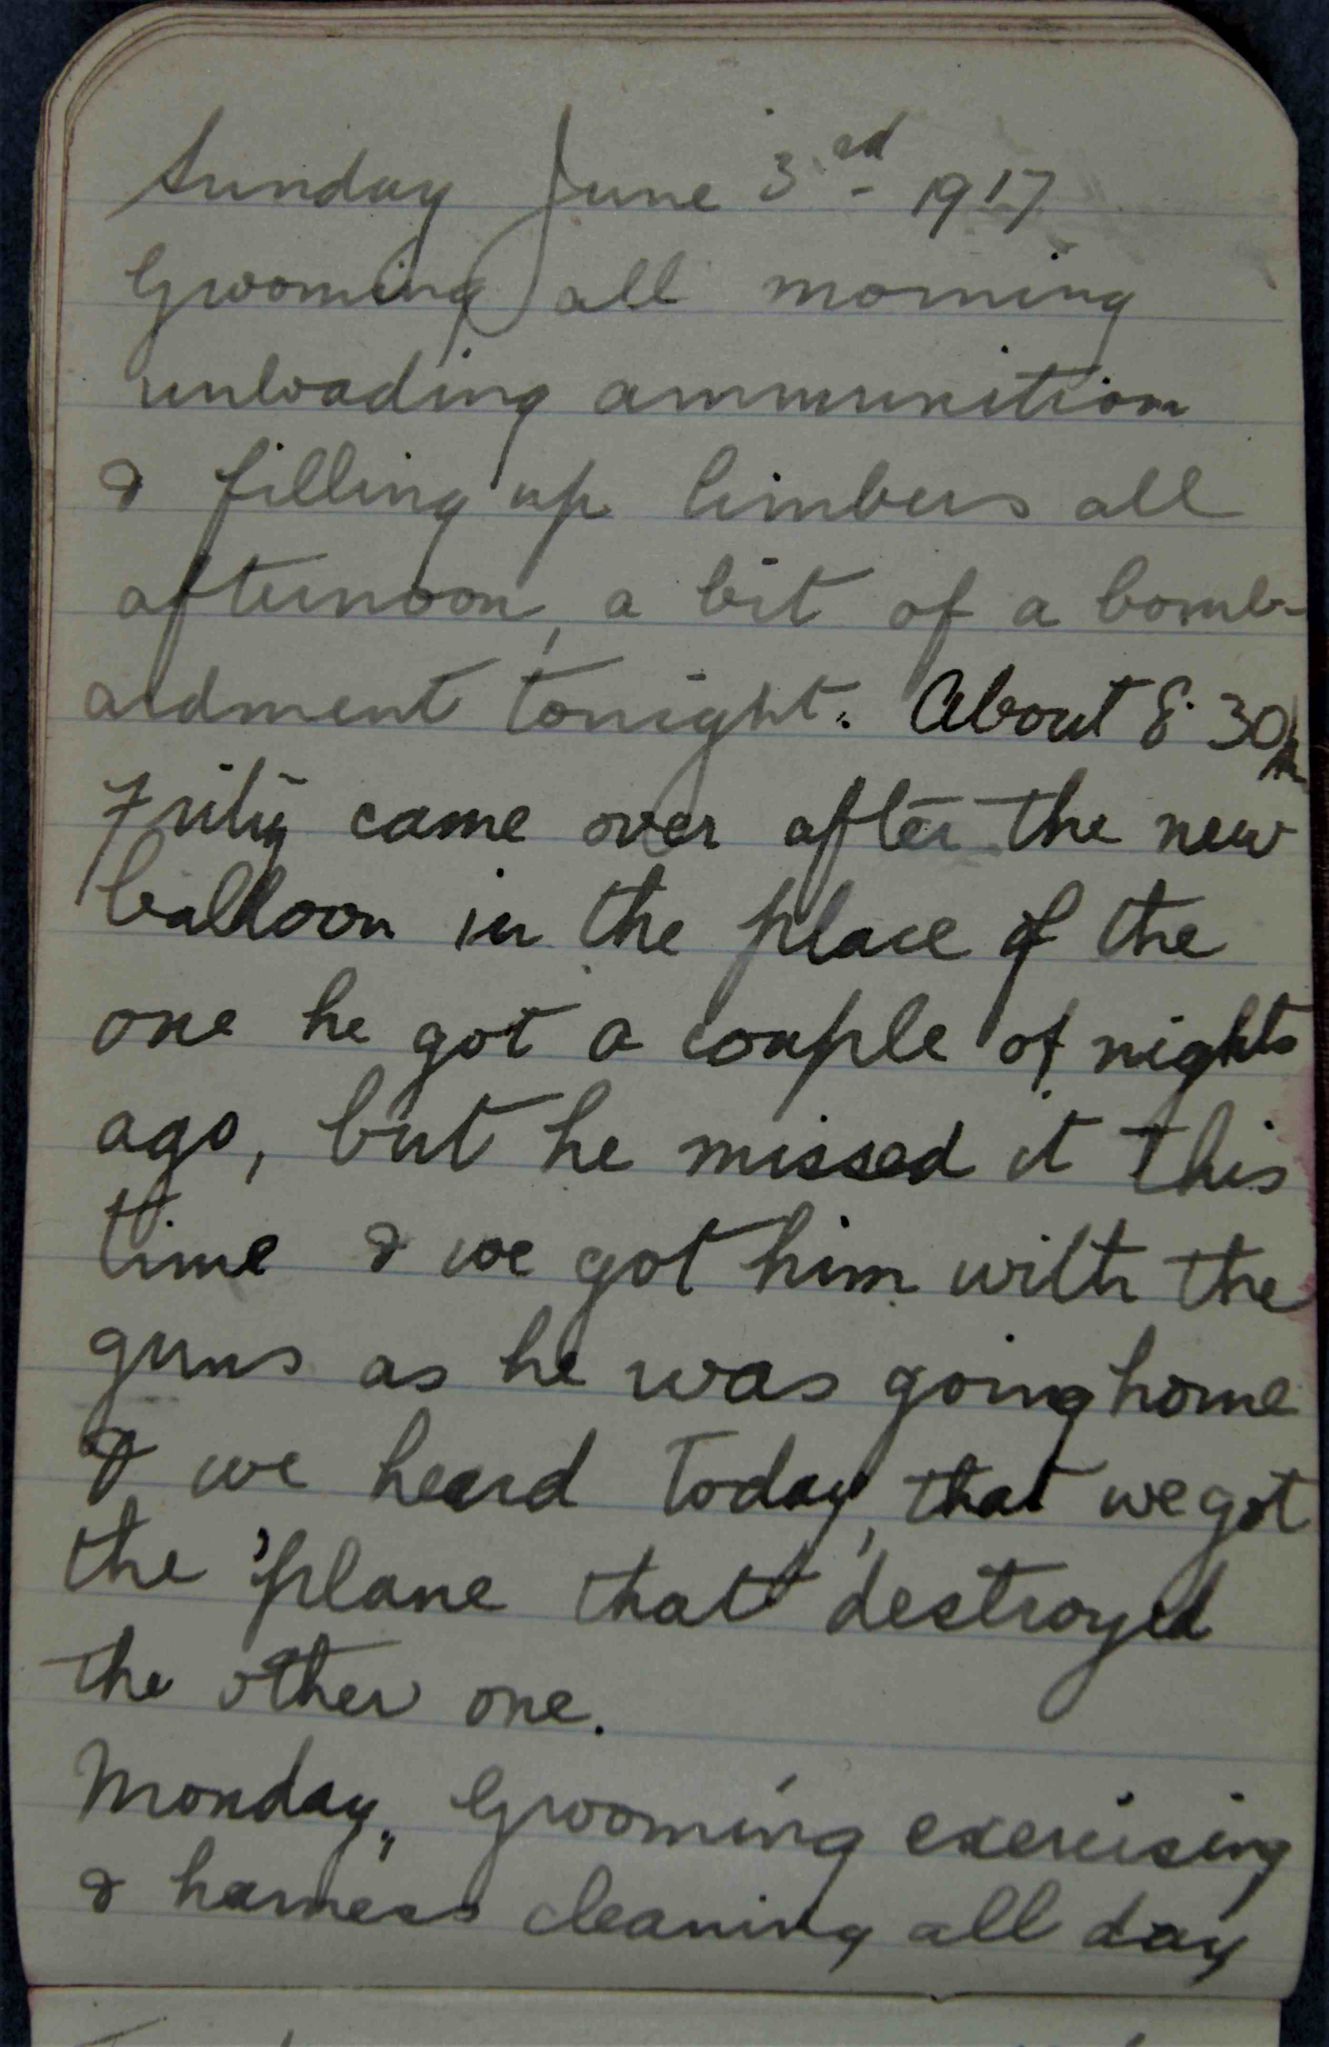 Sunday June 3rd 1917
Grooming all morning
unloading ammunition
& filling up limbers all
afternoon, a bit of a bomb-
ardment tonight. About 8.30
Fritz came over after the new
balloon in the place of the
one he got a couple of nights
ago, but he missed it this
time & we got him with the
guns as he was going home
& we heard today, that we got
the 'plane that destroyed
the other one.
Monday,, Grooming exercising
& harness cleaning all day